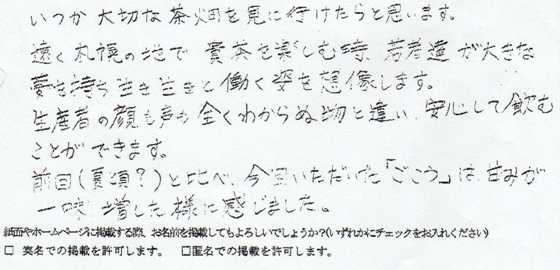 いつか大切な茶畑を見に行けたらと思います。
遠く札幌の地で賣茶を楽しむ時、若者達が大きな
夢を持ち生き生きと働く姿を想像します。
生産者の顔も声も全くわからぬ物と違い、安心して飲む
ことができます。
前回(夏頃?)と比べ、今回いただいた「ごこう」は、甘みが
一味増した様に感じました。
紙面やホームページに掲載する際、お名前を掲載してもよろしいでしょうか?(いずれかにチェックをお入れください)
□ 実名での掲載を許可します。 □匿名での掲載を許可します。